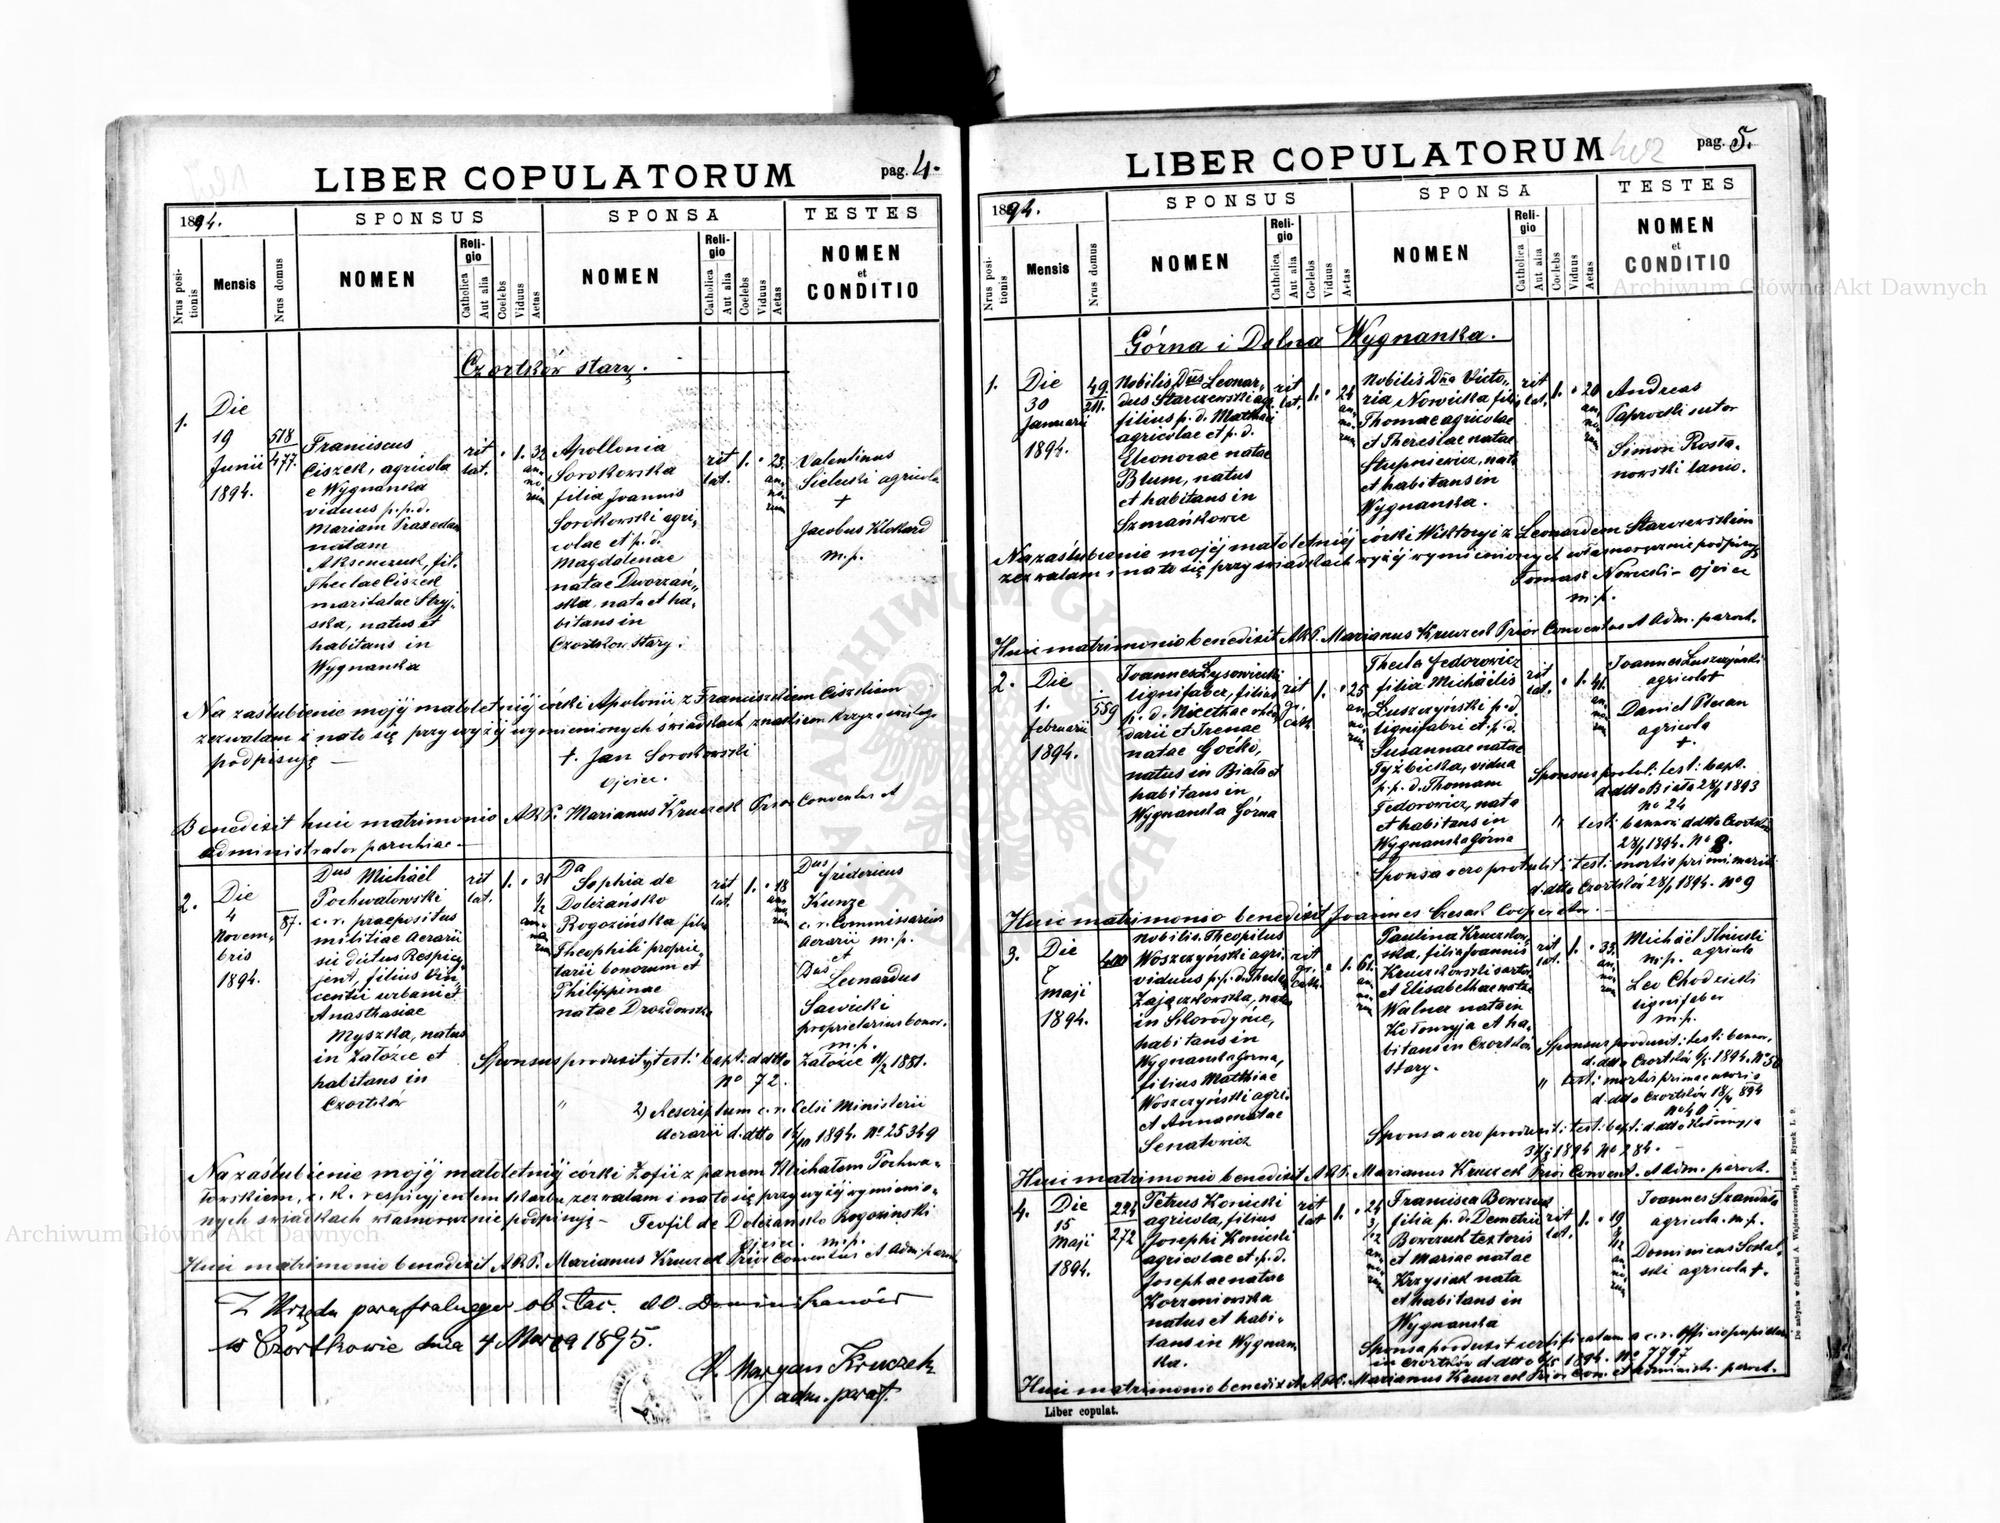 LIBER COPULATORUM
pag. 4.
1894.
SPONSUS
SPONSA
TESTES
Nrus positionis
Mensis
Nrus domus
NOMEN
Religio
Catholica
Aut alia
Coelebs
Viduus
Aetas
NOMEN
Religio
Catholica
Aut alia
Coelebs
Viduus
Aetas
NOMEN
et
CONDITIO
Czortków stary.
1.
Die
19
Junii
1894.
518
477.
Franciscus
Ciszek, agricola
e Wygnanka
viduus p. p. d.
Mariam Praxedam
natam
Aksenczuk, fil.
Theclae Ciszek
maritatae Stryj-
ska, natus et
habitans in
Wygnanka
rit
lat.
1.
32
an-
no-
rum
Apollonia
Sorokowska
filia Joannis
Sorokowski agri-
colae et p. d.
Magdalenae
natae Dworzań-
ska, nata et ha-
bitans in
Czortków stary.
rit
lat.
1.
23.
an-
no-
rum
Valentinus
Sielecki agricola
+
Jacobus Klokard
m. p.
Na zaślubienie mojéj małoletniéj córki Apolonii z Franciszkiem Ciszkiem
zezwalam i na to się przy wyżéj wymienionych świadkach znakiem krzyża świętego
podpisuję —
+ Jan Sorokowski
ojciec.
Benedixit huic matrimonio A. R. P. Marianus Kruczek Prior Conventus et
administrator parochiae —
2.
Die
4
Novem-
bris
1894.
87.
Dus Michaël
Pochwałowski
c. r. praepositus
militiae Aerarii
sic dictus Respicy-
jent, filius Vin-
centii urbani et
Anasthasiae
Myszka, natus
in Załoźce et
habitans in
Czortków
rit
lat.
1.
31
1/2
an-
no-
rum
Da
Sophia de
Doleżańsko
Rogozińska filia
Theophili proprie-
tarii bonorum et
Philippinae
natae Drozdowska
rit
lat.
1.
18
an-
no-
rum
Dus
Fridericus
Kunze
c. r. Commissarius
Aerarii m. p.
et
Dus
Leonardus
Sawicki
proprietarius bonor.
m. p.
Sponsus produxit 1) testi: bapt: d. dtto Załoźce 11/2 1881.
No 72.
" 2) Rescriptum c. r. Celsi Ministerii
Aerarii d. dtto 14/10 1894. No 25349
Na zaślubienie mojéj małoletniéj córki Zofii z panem Michałem Pochwa-
łowskiem, c. k. respicyjentem skarbu, zezwalam i na to się przy wyżéj wymienio-
nych świadkach własnoręcznie podpisuję — Teofil de Doleżańsko Rogoziński
ojciec. m. p.
Huic matrimonio benedixit A. R. P. Marianus Kruczek Prior Conventus et Adm. paroch.
Z Urzędu parafialnego ob. łac. OO. Dominikanów
w Czortkowie dnia 4 Marca 1895.
X. Maryan Kruczek
adm. paraf.
LIBER COPULATORUM
402
pag. 5.
1894.
SPONSUS
SPONSA
TESTES
Nrus positionis
Mensis
Nrus domus
NOMEN
Religio
Catholica
Aut alia
Coelebs
Viduus
Aetas
NOMEN
Religio
Catholica
Aut alia
Coelebs
Viduus
Aetas
NOMEN
et
CONDITIO
Górna i Dolna Wygnanka.
1.
Die
30
Januarii
1894.
49
211.
Nobilis Dus Leonar-
dus Starczewski agr.
filius p. d. Mathaei
agricolae et p. d.
Eleonorae natae
Blum, natus
et habitans in
Szmańkowce
rit
lat.
1.
24
an-
no-
rum
Nobilis Dna Victo-
ria Nowicka filia
Thomae agricolae
et Theresiae natae
Stupniewicz, nata
et habitans in
Wygnanka.
rit
lat.
1.
20
an-
no-
rum
Andreas
Paprocki sutor
Simon Rosta-
nowski lanio.
Na zaślubienie mojéj małoletniéj córki Wiktoryi z Leonardem Starczewskim
zezwalam i na to się przy świadkach wyżéj wymienionych własnoręcznie podpisuję
Tomasz Nowicki — ojciec
m. p.
Huic matrimonio benedixit A. R. P. Marianus Kruczek Prior Conventus et Adm. paroch.
2.
Die
1.
februarii
1894.
559
Joannes Lysowiecki
lignifaber, filius
p. d. Nicethae
et Irenae
natae Goćko,
natus in Biała et
habitans in
Wygnanka Górna
rit
gr.
cath.
1.
25
an-
no-
rum
Thecla Fedorowicz
filia Michaëlis
Luszczyński p. d.
lignifabri et p. d.
Susannae natae
Tyżbicka, vidua
p. p. d. Thomam
Fedorowicz, nata
et habitans in
Wygnanka Górna
rit
lat.
1.
41.
an-
no-
rum
Joannes Luszczyński
agricola +
Daniel Plecan
agricola
+.
Sponsus protul: testi: bapt.
d. dtto Biała 1893
No 24
" testi: bannor: d. dtto Czortków
1894. No 8.
Sponsa vero protulit: testi: mortis primi mariti
d. dtto Czortków 28/1 1894. No 9
Huic matrimonio benedixit Joannes Czesak Cooperator. —
3.
Die
7
Maji
1894.
400
Nobilis Theophilus
Woszczyński agri.
viduus p. p. d. Thecla
Zajączkowska, natus
in Skorodyńce,
habitans in
Wygnanka Górna,
filius Mathiae
Woszczyński agri.
et Annae natae
Senatowicz
rit
gr.
cath.
1.
61.
an-
no-
rum
Paulina Kruczkow-
ska, filia Joannis
Kruczkowski sartor.
et Elisabethae natae
Walner nata in
Kołomyja et ha-
bitans in Czortków
stary.
rit
lat.
1.
33.
an-
no-
rum
Michaël Ilnicki
m. p. agricola
Leo Chodzicki
lignifaber
m. p.
Sponsus produxit: testi: bannor.
d. dtto Czortków 1894. No 50
" testi: mortis primae uxoris
d. dtto Czortków 894
No 40.
Sponsa vero produxit: testi: bapt: d. dtto Kołomyja
1894 No 284. —
Huic matrimonio benedixit A. R. P. Marianus Kruczek Prior Convent. et Adm. paroch.
4.
Die
15
Maji
1894.
224
272
Petrus Konicki
agricola, filius
Josephi Konicki
agricolae et p. d.
Josephae natae
Korzeniowska
natus et habi-
tans in Wygnan-
ka.
rit
lat
1.
24
3/12
an-
no-
rum
Francisca Bowczuk
filia p. d. Demetrii
Bowczuk textoris
et Mariae natae
Krzysiak nata
et habitans in
Wygnanka
rit
lat.
1.
19
an-
no-
rum
Joannes Szandała
agricola. m. p.
Dominicus Soskal-
ski agricola +.
Sponsa produxit certificatum a c. r. Officio pupillari
in Czortków d. dtto 1894. No 7797
Huic matrimonio benedixit A. R. P. Marianus Kruczek Prior Con. et Administ. paroch.
Liber copulat.
De nabycia w drukarni A. Wajdowiczowej, Lwów, Rynek l. 9.
Archiwum Główne Akt Dawnych
Archiwum Główne Akt Dawnych
ARCHIWUM GŁÓWNE AKT DAWNYCH